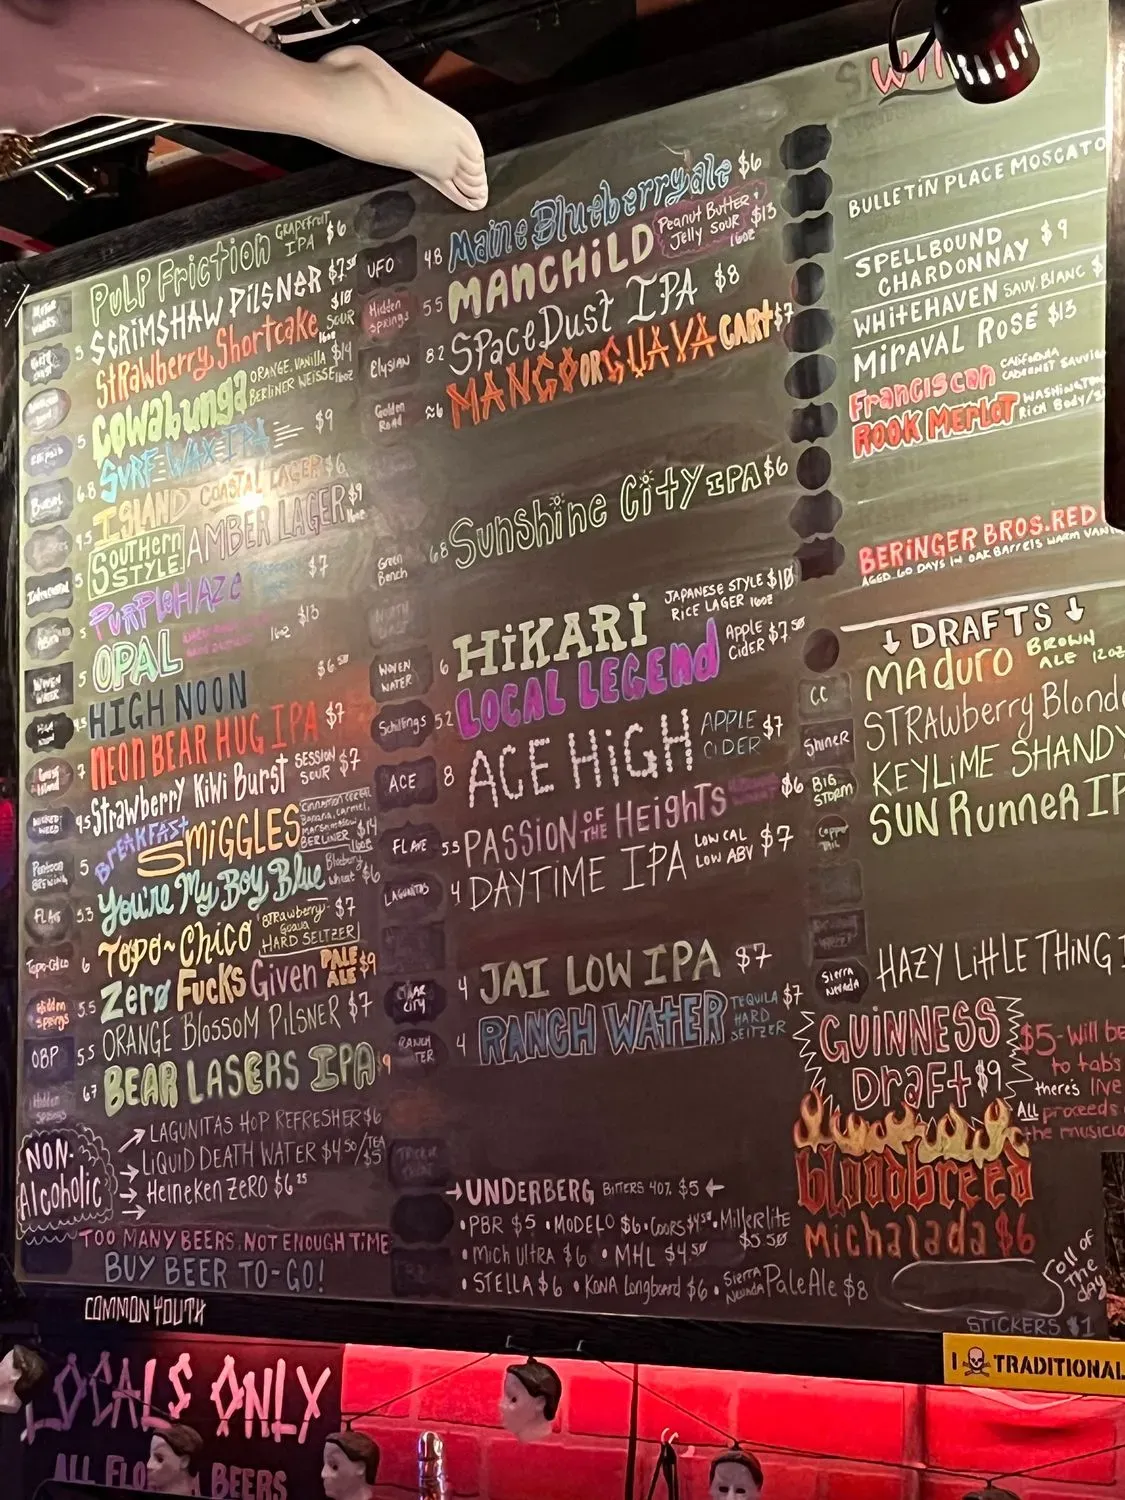 PULP FRICTION GRAPEFRUIT IPA $6
SCRIMSHAW PILSNER $7.50
5 Strawberry Shortcake SOUR 16oz $10
Cowabunga ORANGE. Vanilla BERLINER WEISSE 16oz $14
5 SURF WAX IPA $9
6.8 ISLAND COASTAL LAGER $6
4.5 SOUTHERN STYLE AMBER LAGER 16oz $9
5 PURPLE HAZE $7
5 OPAL 16oz $13
WOVEN WATER
5 HIGH NOON $6.50
4.5 NEON BEAR HUG IPA $7
7 Strawberry Kiwi Burst SESSION SOUR $7
4.5 BREAKFAST SMIGGLES Cinnamon cereal, Banana, Carmel, Marshmallow BERLINER 16oz $14
5 You're My Boy Blue Blueberry wheat $6
FLAG 5.3 TOPO~CHICO Strawberry Guava HARD SELTZER $7
Topo-Chico 6 Zero Fucks Given PALE ALE $9
Hidden Springs 5.5 ORANGE Blossom PILSNER $7
OBP 5.5 BEAR LASERS IPA 9
Hidden Springs 6.7
NON-Alcoholic
LAGUNITAS HOP REFRESHER $6
LIQUID DEATH WATER $4.50/TEA $5
Heineken ZERO $6.25
TOO MANY BEERS, NOT ENOUGH TIME
BUY BEER TO-GO!
COMMON YOUTH
Maine Blueberry ale $6
UFO 4.8 MANCHILD Peanut Butter & Jelly SOUR 16oz $13
Hidden Springs 5.5 SPACE DUST IPA $8
Elysian 8.2 MANGO OR GUAVA CART $7
Golden Road ≈6
Sunshine City IPA $6
Green Bench 6.8
HIKARI JAPANESE STYLE RICE LAGER 16oz $10
WOVEN WATER 6 LOCAL LEGEND Apple Cider $7.50
Schillings 5.2 ACE HIGH APPLE CIDER $7
ACE 8 PASSION OF THE HEIGHTS $6
5.5 DAYTIME IPA LOW CAL LOW ABV $7
LAGUNITAS 4
JAI LOW IPA $7
CIGAR CITY 4 RANCH WATER TEQUILA HARD SELTZER $7
RANCH WATER 4
→UNDERBERG BITTERS 40% $5←
•PBR $5 •MODELO $6 •COORS $4.50 •Miller lite $5.50
•Mich Ultra $6 •MHL $4.50
•STELLA $6 •KONA Longboard $6 •Sierra Nevada Pale Ale $8
BULLETIN PLACE MOSCATO
SPELLBOUND CHARDONNAY $9
WHITEHAVEN SAUV. BLANC $
MIRAVAL ROSÉ $13
Franciscan CALIFORNIA
ROOK MERLOT WASHINGTON
RICH Body/
BERINGER BROS. RED
AGED 60 DAYS IN OAK BARRELS WARM
↓DRAFTS↓
MADURO BROWN ALE 12oz
C.C. STRAWberry Blonde
Shiner KEYLIME SHANDY
BIG STORM SUN Runner IP
Copper Tail
Sierra Nevada HAZY LITTLE THING I
GUINNESS Draft $9
$5-will be
to tab's
there's live
ALL proceeds
the musicia
bloodbreed
Michalada $6
of The day
STICKERS $1
I TRADITIONAL
LOCALS ONLY
BEERS